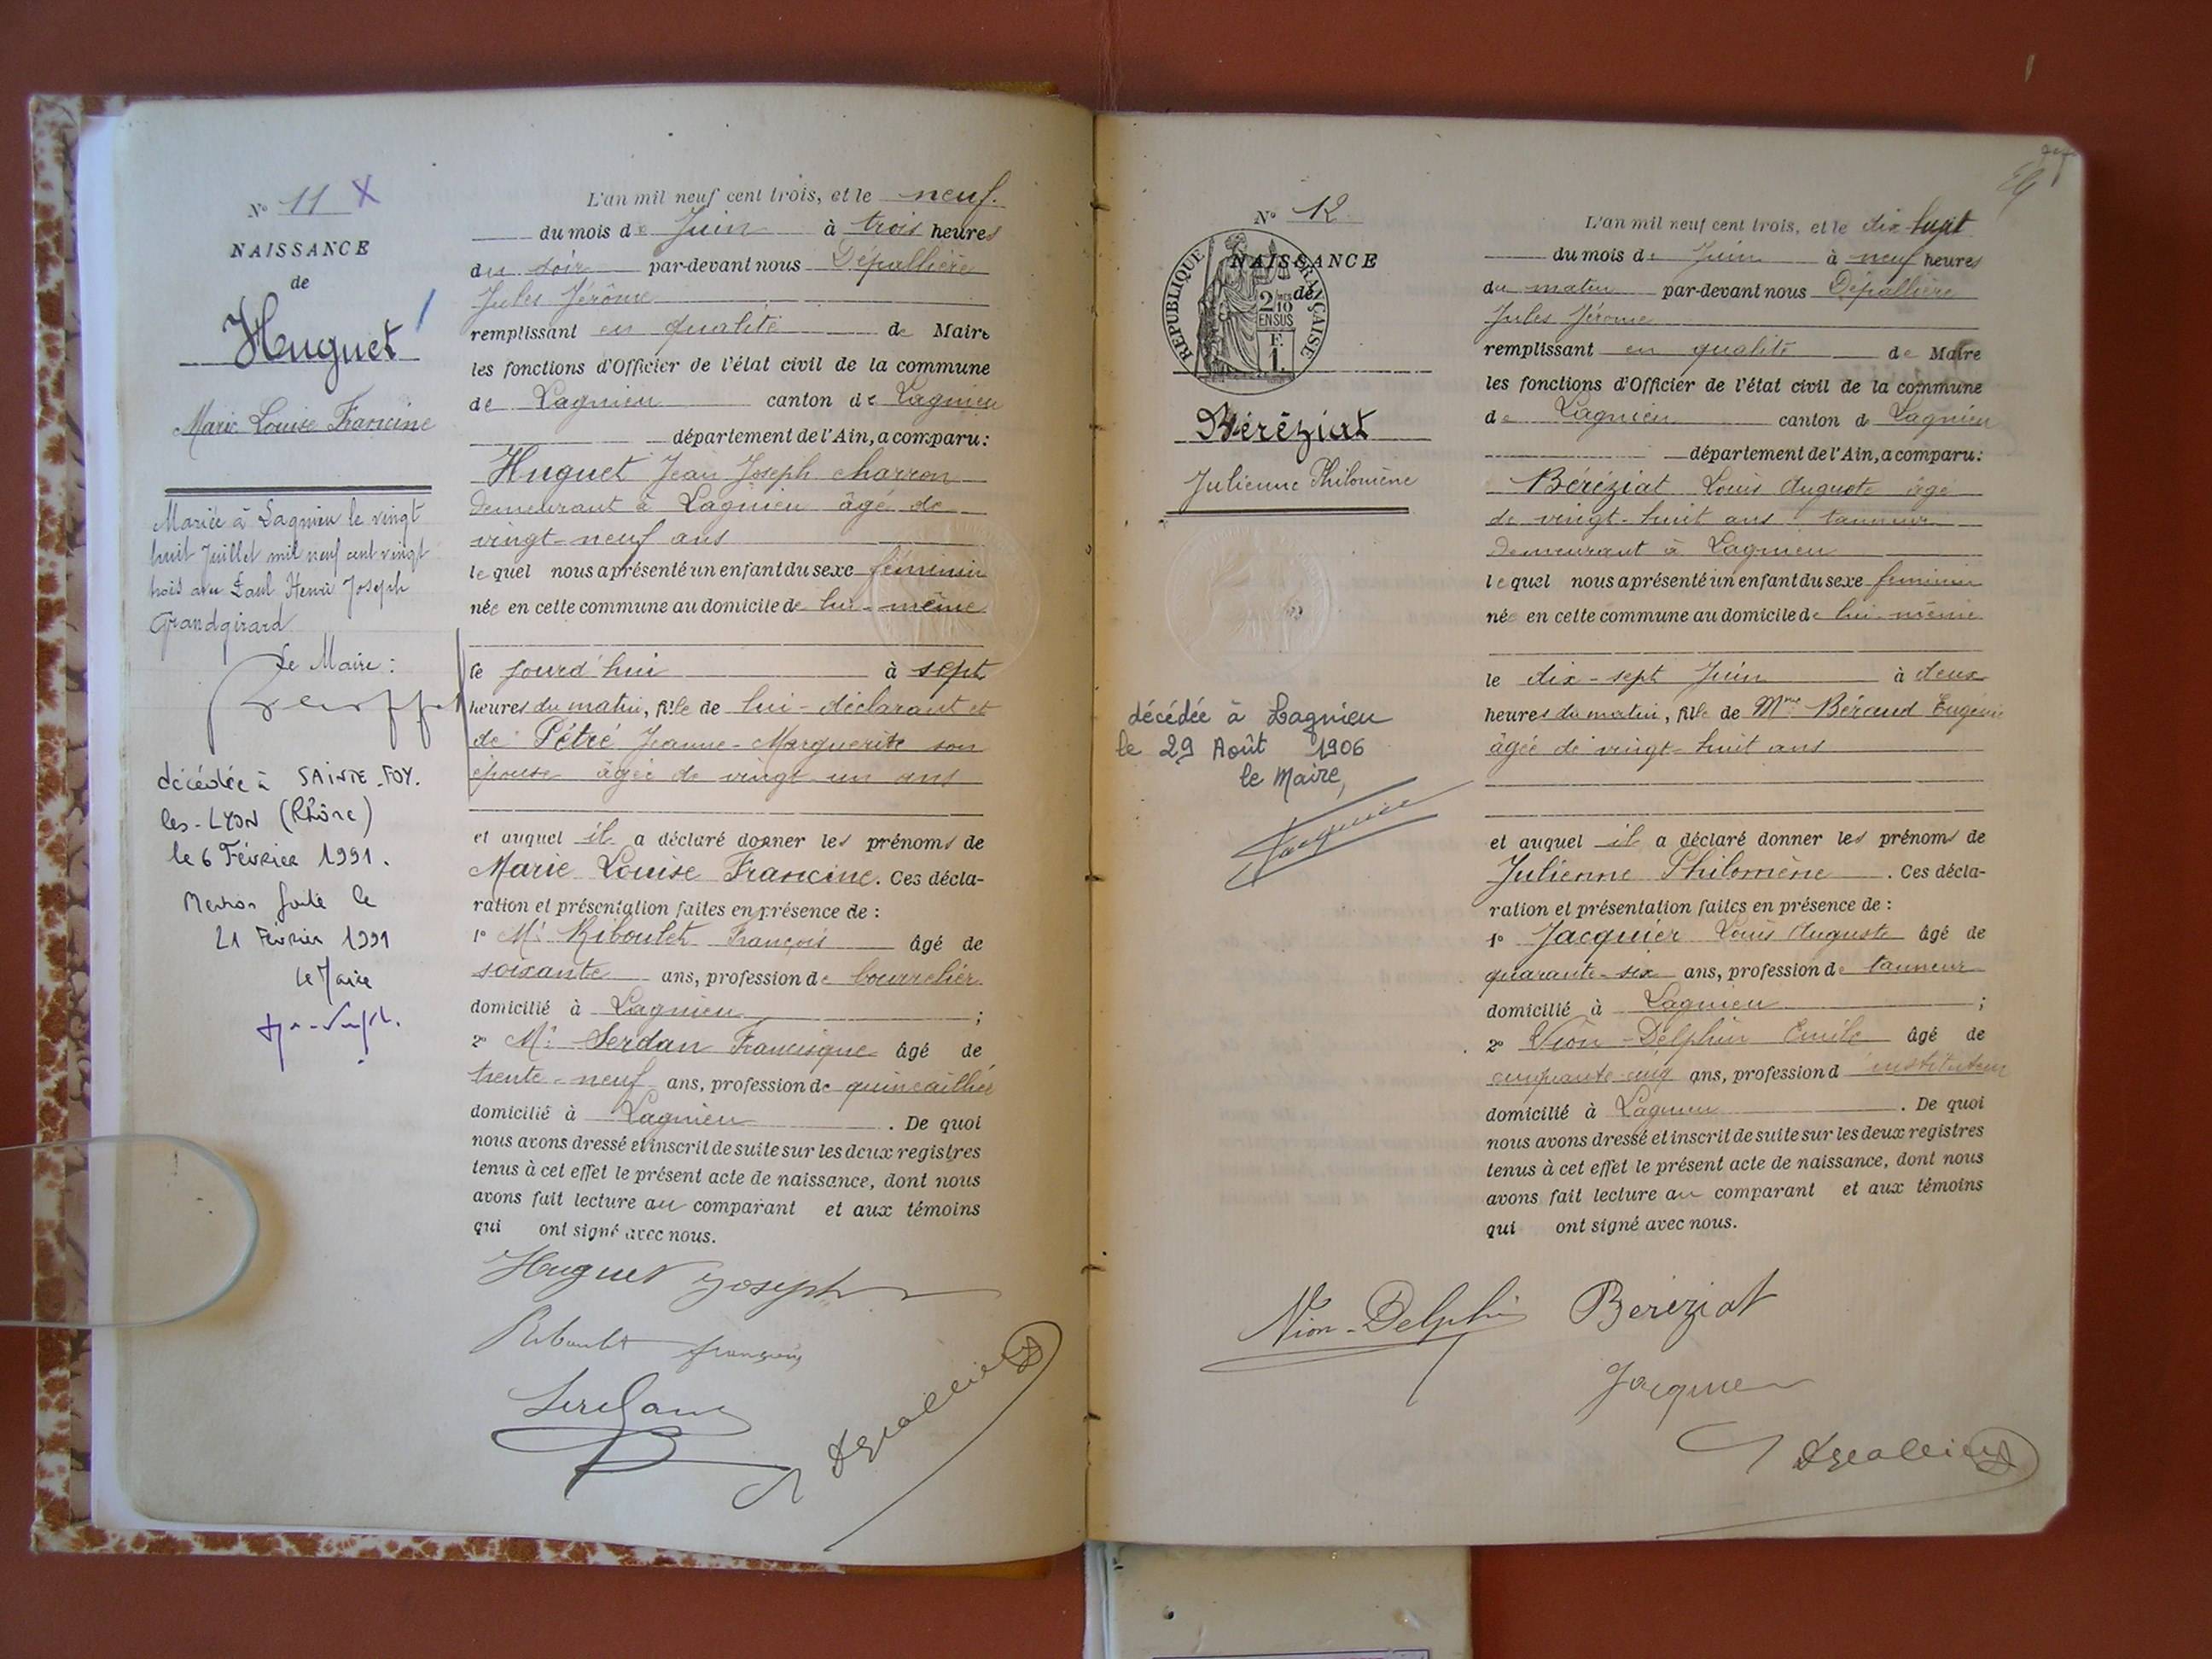 N° 11 X
NAISSANCE
de
Huguet
Marie Louise Francine
Mariée à Lagnieu le vingt
huit Juillet mil neuf cent vingt
trois avec Paul Henri Joseph
Grandgirard
Le Maire :
décédée à SAINTE-FOY-
les-LYON (Rhône)
le 6 Février 1991.
Mention faite le
21 Février 1991
le Maire
L'an mil neuf cent trois, et le neuf.
du mois de Juin à trois heures
du soir par-devant nous Dépallière
Jules Jérôme
remplissant en qualité de Maire
les fonctions d'Officier de l'état civil de la commune
de Lagnieu canton de Lagnieu
département de l'Ain, a comparu :
Huguet Jean Joseph charron
demeurant à Lagnieu âgé de
vingt-neuf ans
lequel nous a présenté un enfant du sexe féminin
née en cette commune au domicile de lui-même
le jourd'hui à sept
heures du matin, fille de lui-déclarant et
de Pétré Jeanne-Marguerite son
épouse âgée de vingt un ans
et auquel il a déclaré donner les prénoms de
Marie Louise Francine. Ces décla-
ration et présentation faites en présence de :
1° Mr Riboulet François âgé de
soixante ans, profession de bourrelier
domicilié à Lagnieu ;
2° Mr Serdan Francisque âgé de
trente-neuf ans, profession de quincaillier
domicilié à Lagnieu . De quoi
nous avons dressé et inscrit de suite sur les deux registres
tenus à cet effet le présent acte de naissance, dont nous
avons fait lecture au comparant et aux témoins
qui ont signé avec nous.
Huguet Joseph
Riboulet françois
Serdan
Dépallière
N° 12
NAISSANCE
de
REPUBLIQUE FRANÇAISE
2/10
EN SUS
F.
1.
Béréziat
Julienne Philomène
décédée à Lagnieu
le 29 Août 1906
le Maire,
L'an mil neuf cent trois, et le dix-huit
du mois de Juin à neuf heures
du matin par-devant nous Dépallière
Jules Jérome
remplissant en qualité de Maire
les fonctions d'Officier de l'état civil de la commune
de Lagnieu canton de Lagnieu
département de l'Ain, a comparu :
Béréziat Louis Auguste âgé
de vingt-huit ans tanneur
demeurant à Lagnieu
lequel nous a présenté un enfant du sexe féminin
née en cette commune au domicile de lui-même
le dix-sept Juin à deux
heures du matin, fille de Mme Béraud Eugénie
âgée de vingt-huit ans
et auquel il a déclaré donner les prénoms de
Julienne Philomène . Ces décla-
ration et présentation faites en présence de :
1° Jacquier Louis Auguste âgé de
quarante-six ans, profession de tanneur
domicilié à Lagnieu ;
2° Vion-Delphin Emile âgé de
cinquante-cinq ans, profession d instituteur
domicilié à Lagnieu . De quoi
nous avons dressé et inscrit de suite sur les deux registres
tenus à cet effet le présent acte de naissance, dont nous
avons fait lecture au comparant et aux témoins
qui ont signé avec nous.
Vion-Delphin Béréziat
Jacquier
Dépallière